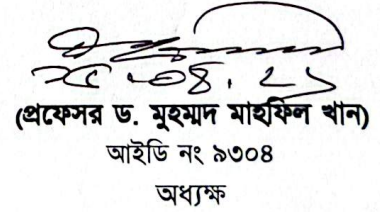 ২৫.০৪.২১
(প্রফেসর ড. মুহম্মদ মাহফিল খান)
আইডি নং ৯৩০৪
অধ্যক্ষ